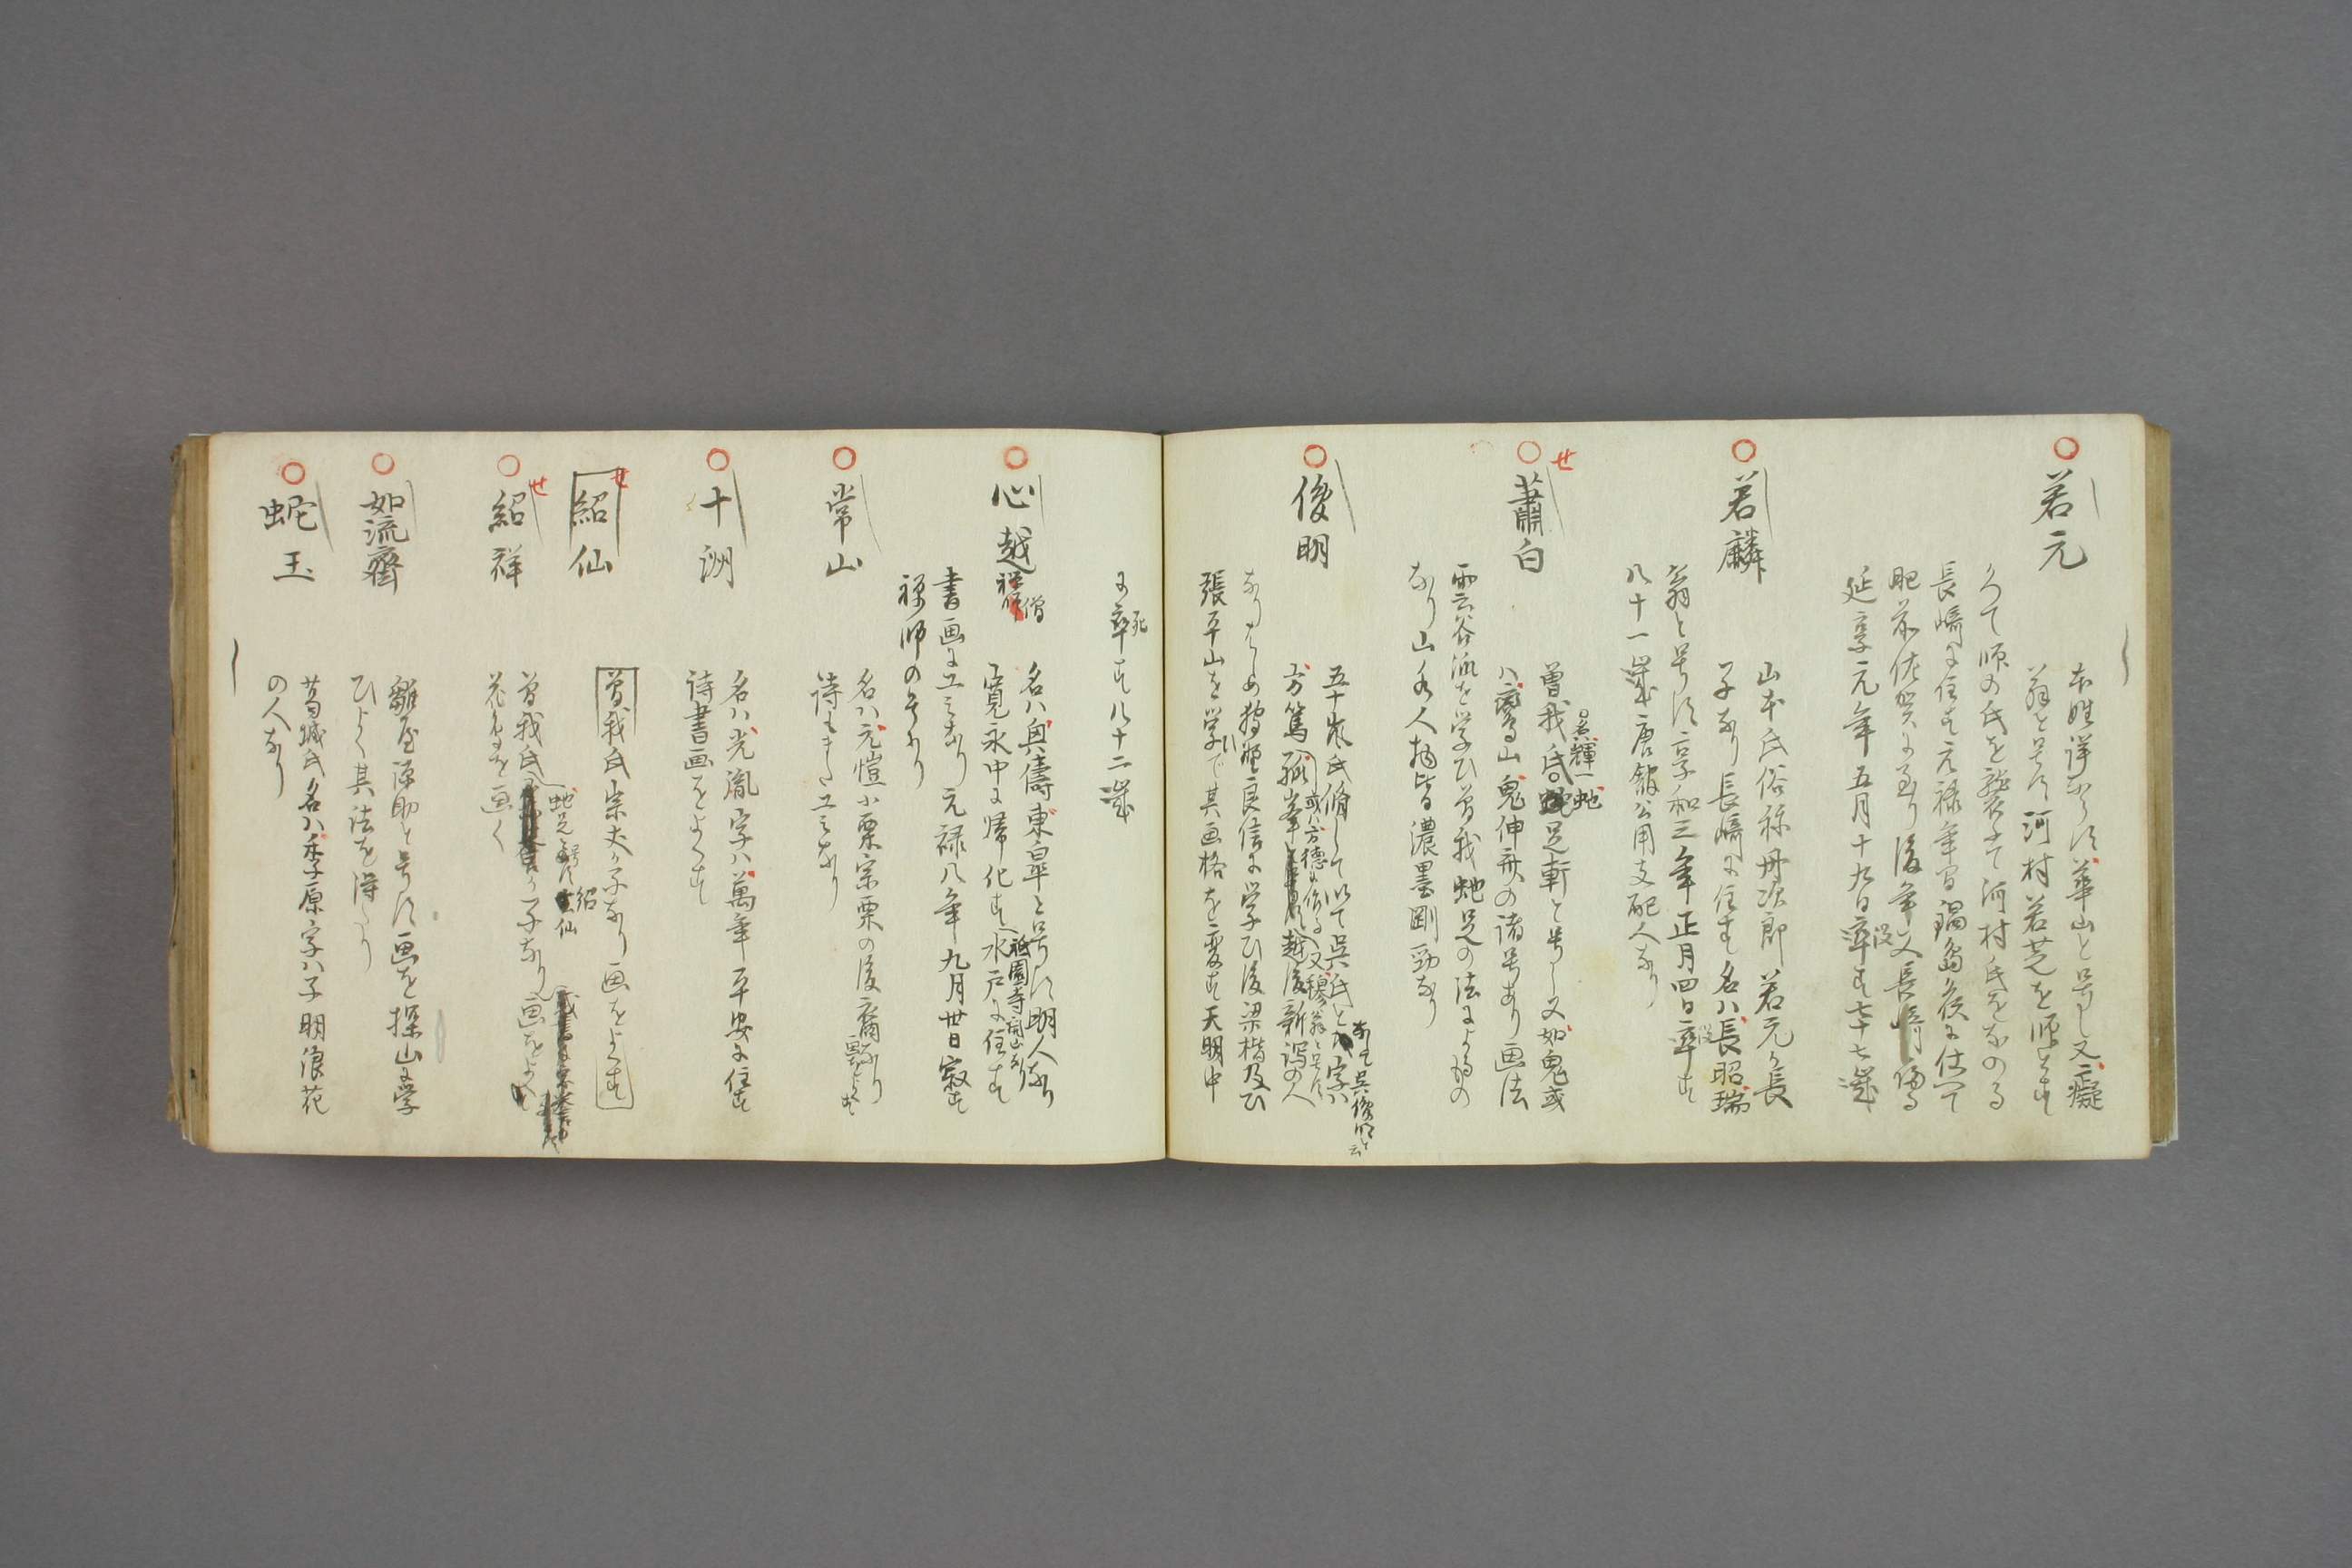 若元
本姓詳ならす華山と号し又癡
翁と号す河村若芝を師とす
よつて師の氏を襲ふて河村氏をなのる
長崎に住す元禄年間鍋島侯に仕へて
肥前佐賀に至り後年又長崎に帰る
延享元年五月十九日卒す七十七歳
没
若麟
山本氏俗称丹次郎若元か長
子なり長崎に住す名ハ長昭瑞
翁と号す享和三年正月四日卒す
没
八十一歳唐館公用支配人なり
せ
蕭白
曽我氏蛇足軒と号し又如鬼或
名輝一
ハ鸞山鬼伸斎の諸号あり画法
雲谷派を学ひ曽我蛇足の法によるもの
なり山水人物皆濃墨剛勁なり
俊明
五十嵐氏脩して以て呉氏とす字ハ
方篤孤峯と号す越後新潟の人
或ハ方徳に作る
又穆翁と号す
なりはしめ狩野良信に学ひ後梁楷及ひ
張平山を学んて其画格を変す天明中
に卒す八十二歳
死
心越
僧
名ハ興儔東皐と号す明人なり
寛永中に帰化す水戸に住す
祇園寺開山なり
書画に工みなり元禄八年九月廿日寂す
禅師の号あり
常山
名ハ元愷小栗宗栗の後裔なり
画をよくす
詩もまた工みなり
十洲
名ハ光胤字ハ萬年平安に住す
詩書画をよくす
せ
紹仙
曽我氏宗丈か子なり画をよくす
せ
紹祥
曽我氏
蛇足と号す紹仙
か子なり画をよくす
花鳥を画く
如流齋
雛屋源助と号す画を探山に学
ひよく其法を得たり
蛇玉
葛城氏名ハ季原字ハ子明浪花
の人なり